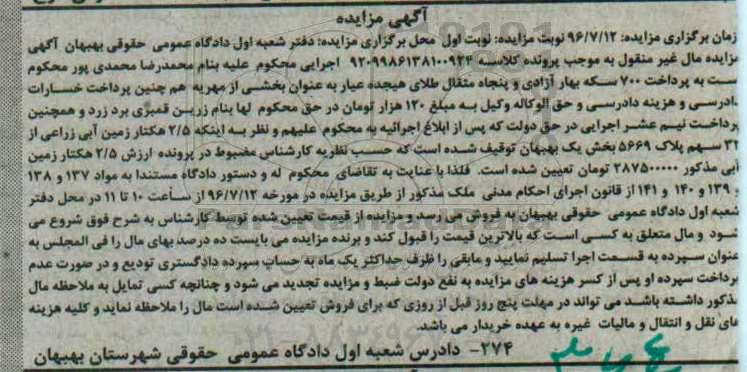 آگهی مزایده
زمان برگزاری مزایده: ۹۶/۷/۱۲ نوبت مزایده: نوبت اول محل برگزاری مزایده: دفتر شعبه اول دادگاه عمومی حقوقی بهبهان آگهی
مزایده مال غیر منقول به موجب پرونده کلاسه ۹۲۰۹۹۸۶۱۳۸۱۰۰۹۲۴ اجرایی محکوم علیه بنام محمدرضا محمدی پور محکوم
است به پرداخت ۷۰۰ سکه بهار آزادی و پنجاه مثقال طلای هیجده عیار به عنوان بخشی از مهریه هم چنین پرداخت خسارات
دادرسی و هزینه دادرسی و حق الوکاله وکیل به مبلغ ۱۲۰ هزار تومان در حق محکوم لها بنام زرین قمبری برد زرد و همچنین
پرداخت نیم عشر اجرایی در حق دولت که پس از ابلاغ اجرائیه به محکوم علیهم و نظر به اینکه ۲/۵ هکتار زمین آبی زراعی از
۳۲ سهم پلاک ۵۶۶۹ بخش یک بهبهان توقیف شده است که حسب نظریه کارشناس مضبوط در پرونده ارزش ۲/۵ هکتار زمین
آبی مذکور ۲۸۷۵۰۰۰۰۰ تومان تعیین شده است. فلذا با عنایت به تقاضای محکوم له و دستور دادگاه مستندا به مواد ۱۳۷ و ۱۳۸
و ۱۳۹ و ۱۴۰ و ۱۴۱ از قانون اجرای احکام مدنی ملک مذکور از طریق مزایده در مورخه ۹۶/۷/۱۲ از ساعت ۱۰ تا ۱۱ در محل دفتر
شعبه اول دادگاه عمومی حقوقی بهبهان به فروش می رسد و مزایده از قیمت تعیین شده توسط کارشناس به شرح فوق شروع می
شود و مال متعلق به کسی است که بالاترین قیمت را قبول کند و برنده مزایده می بایست ده درصد بهای مال را فی المجلس به
عنوان سپرده به قسمت اجرا تسلیم نمایید و مابقی را ظرف حداکثر یک ماه به حساب سپرده دادگستری تودیع و در صورت عدم
پرداخت سپرده او پس از کسر هزینه های مزایده به نفع دولت ضبط و مزایده تجدید می شود و چنانچه کسی تمایل به ملاحظه مال
مذکور داشته باشد می تواند در مهلت پنج روز قبل از روزی که برای فروش تعیین شده است مال را ملاحظه نماید و کلیه هزینه
های نقل و انتقال و مالیات غیره به عهده خریدار می باشد.
۲۷۴- دادرس شعبه اول دادگاه عمومی حقوقی شهرستان بهبهان